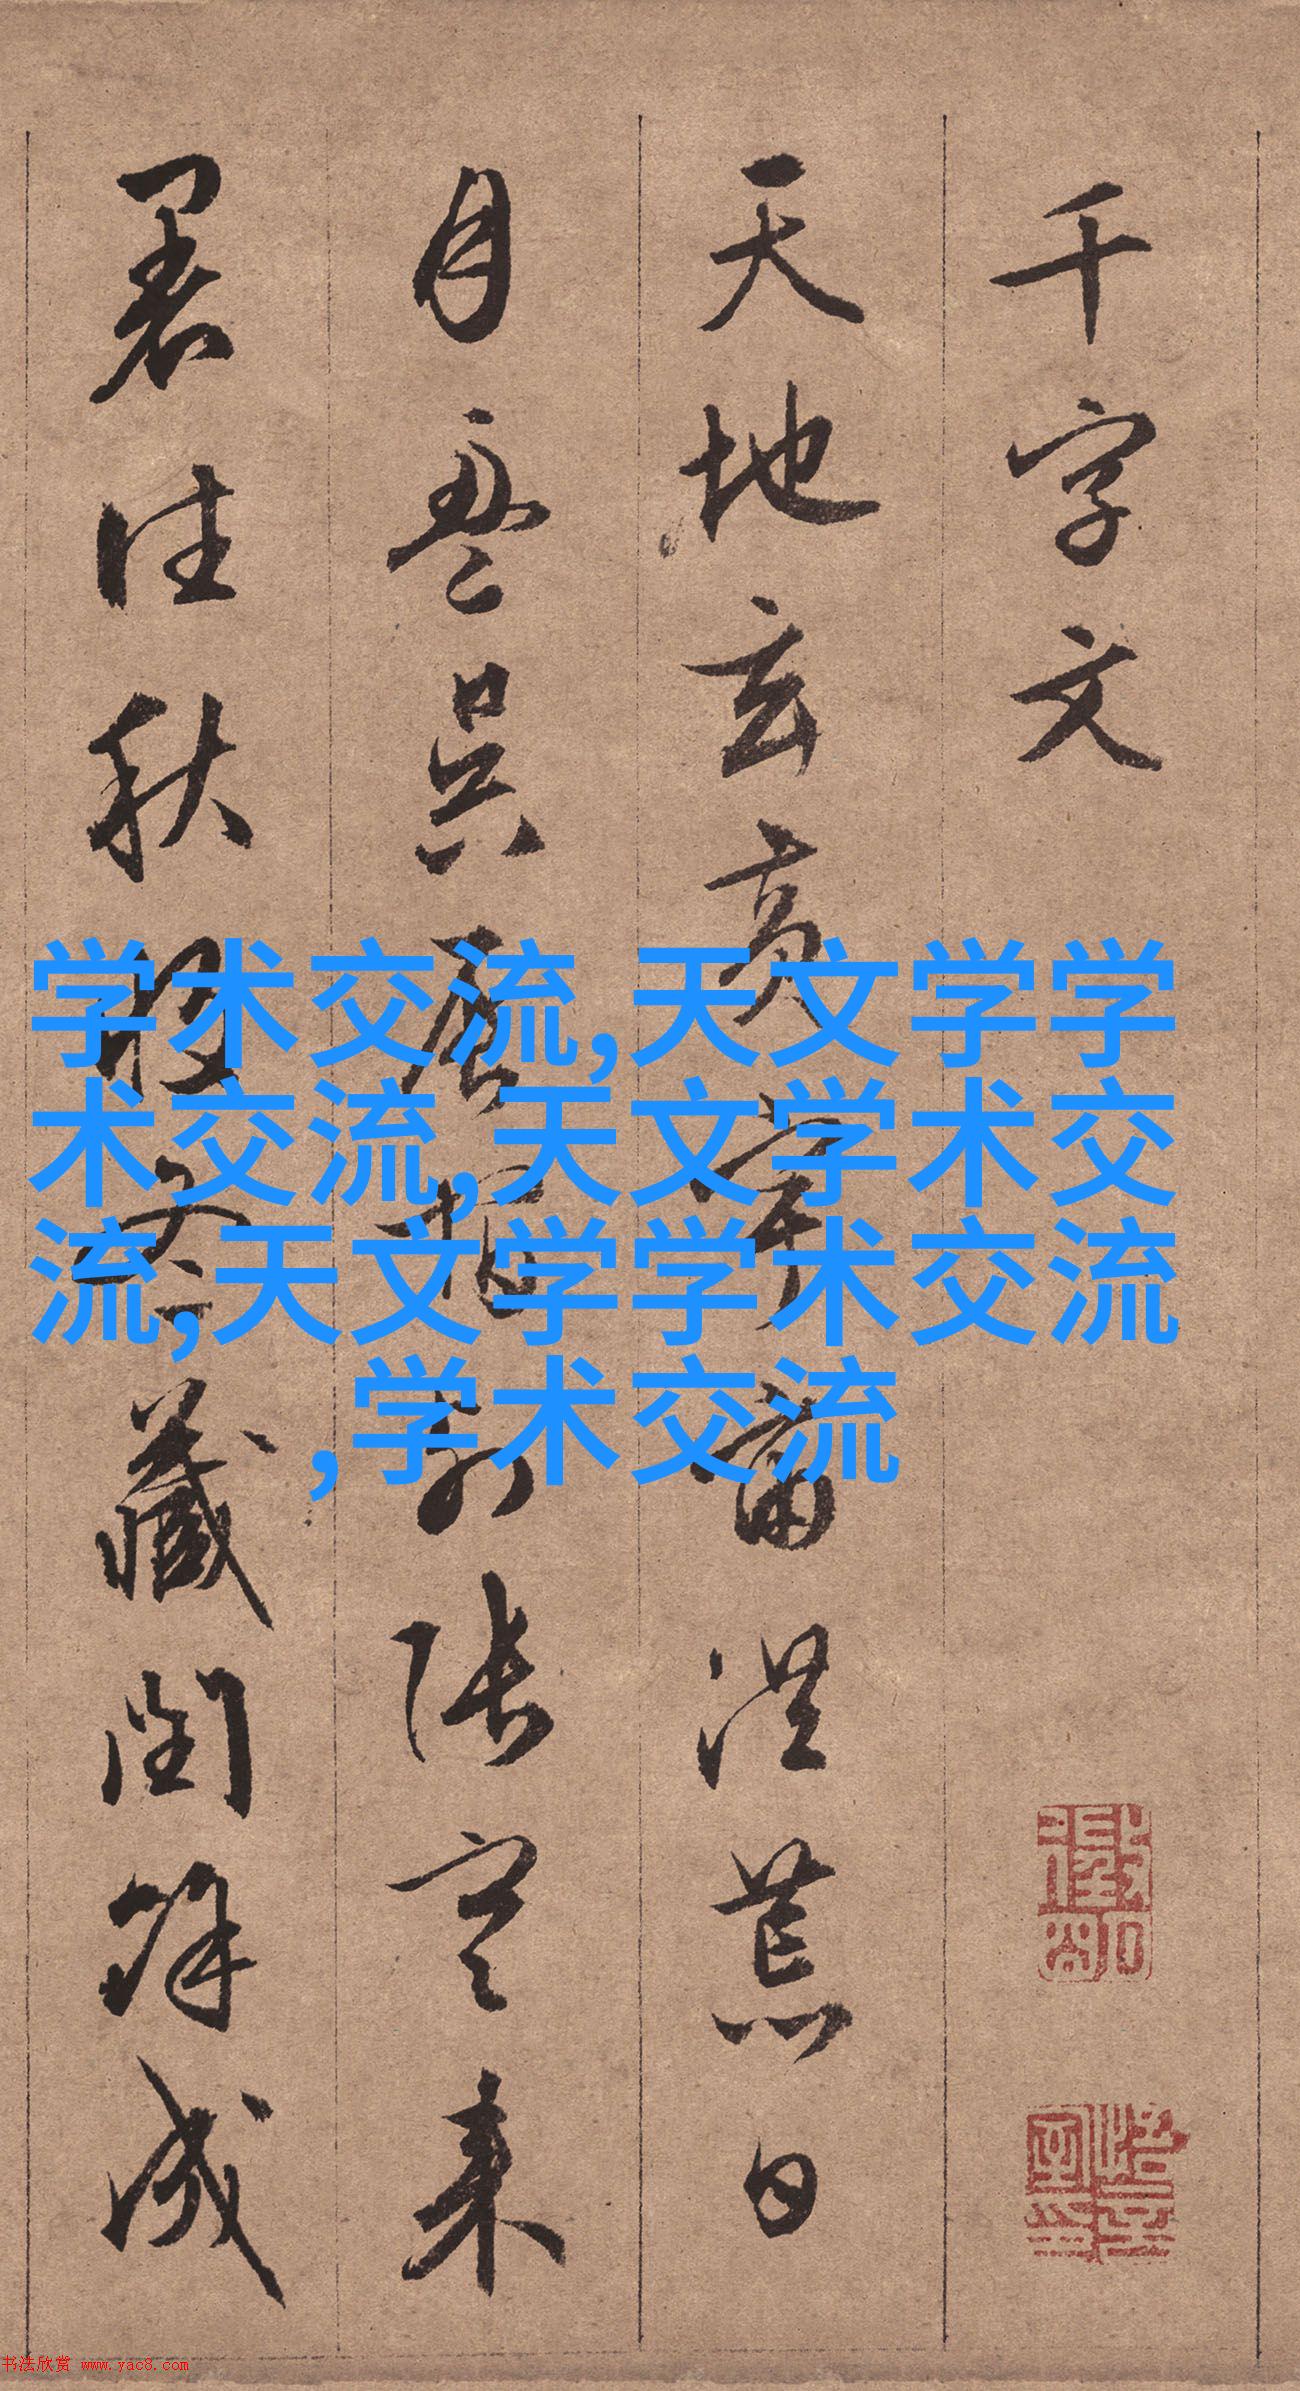 千字文
天地玄黄宇宙洪荒日
月盈昃辰宿列張寒来
暑往秋收冬藏閏餘成
学术交流,天文学学
术交流,天文学术交
流,天文学学术交流
,学术交流
书法欣赏 www.yac8.com